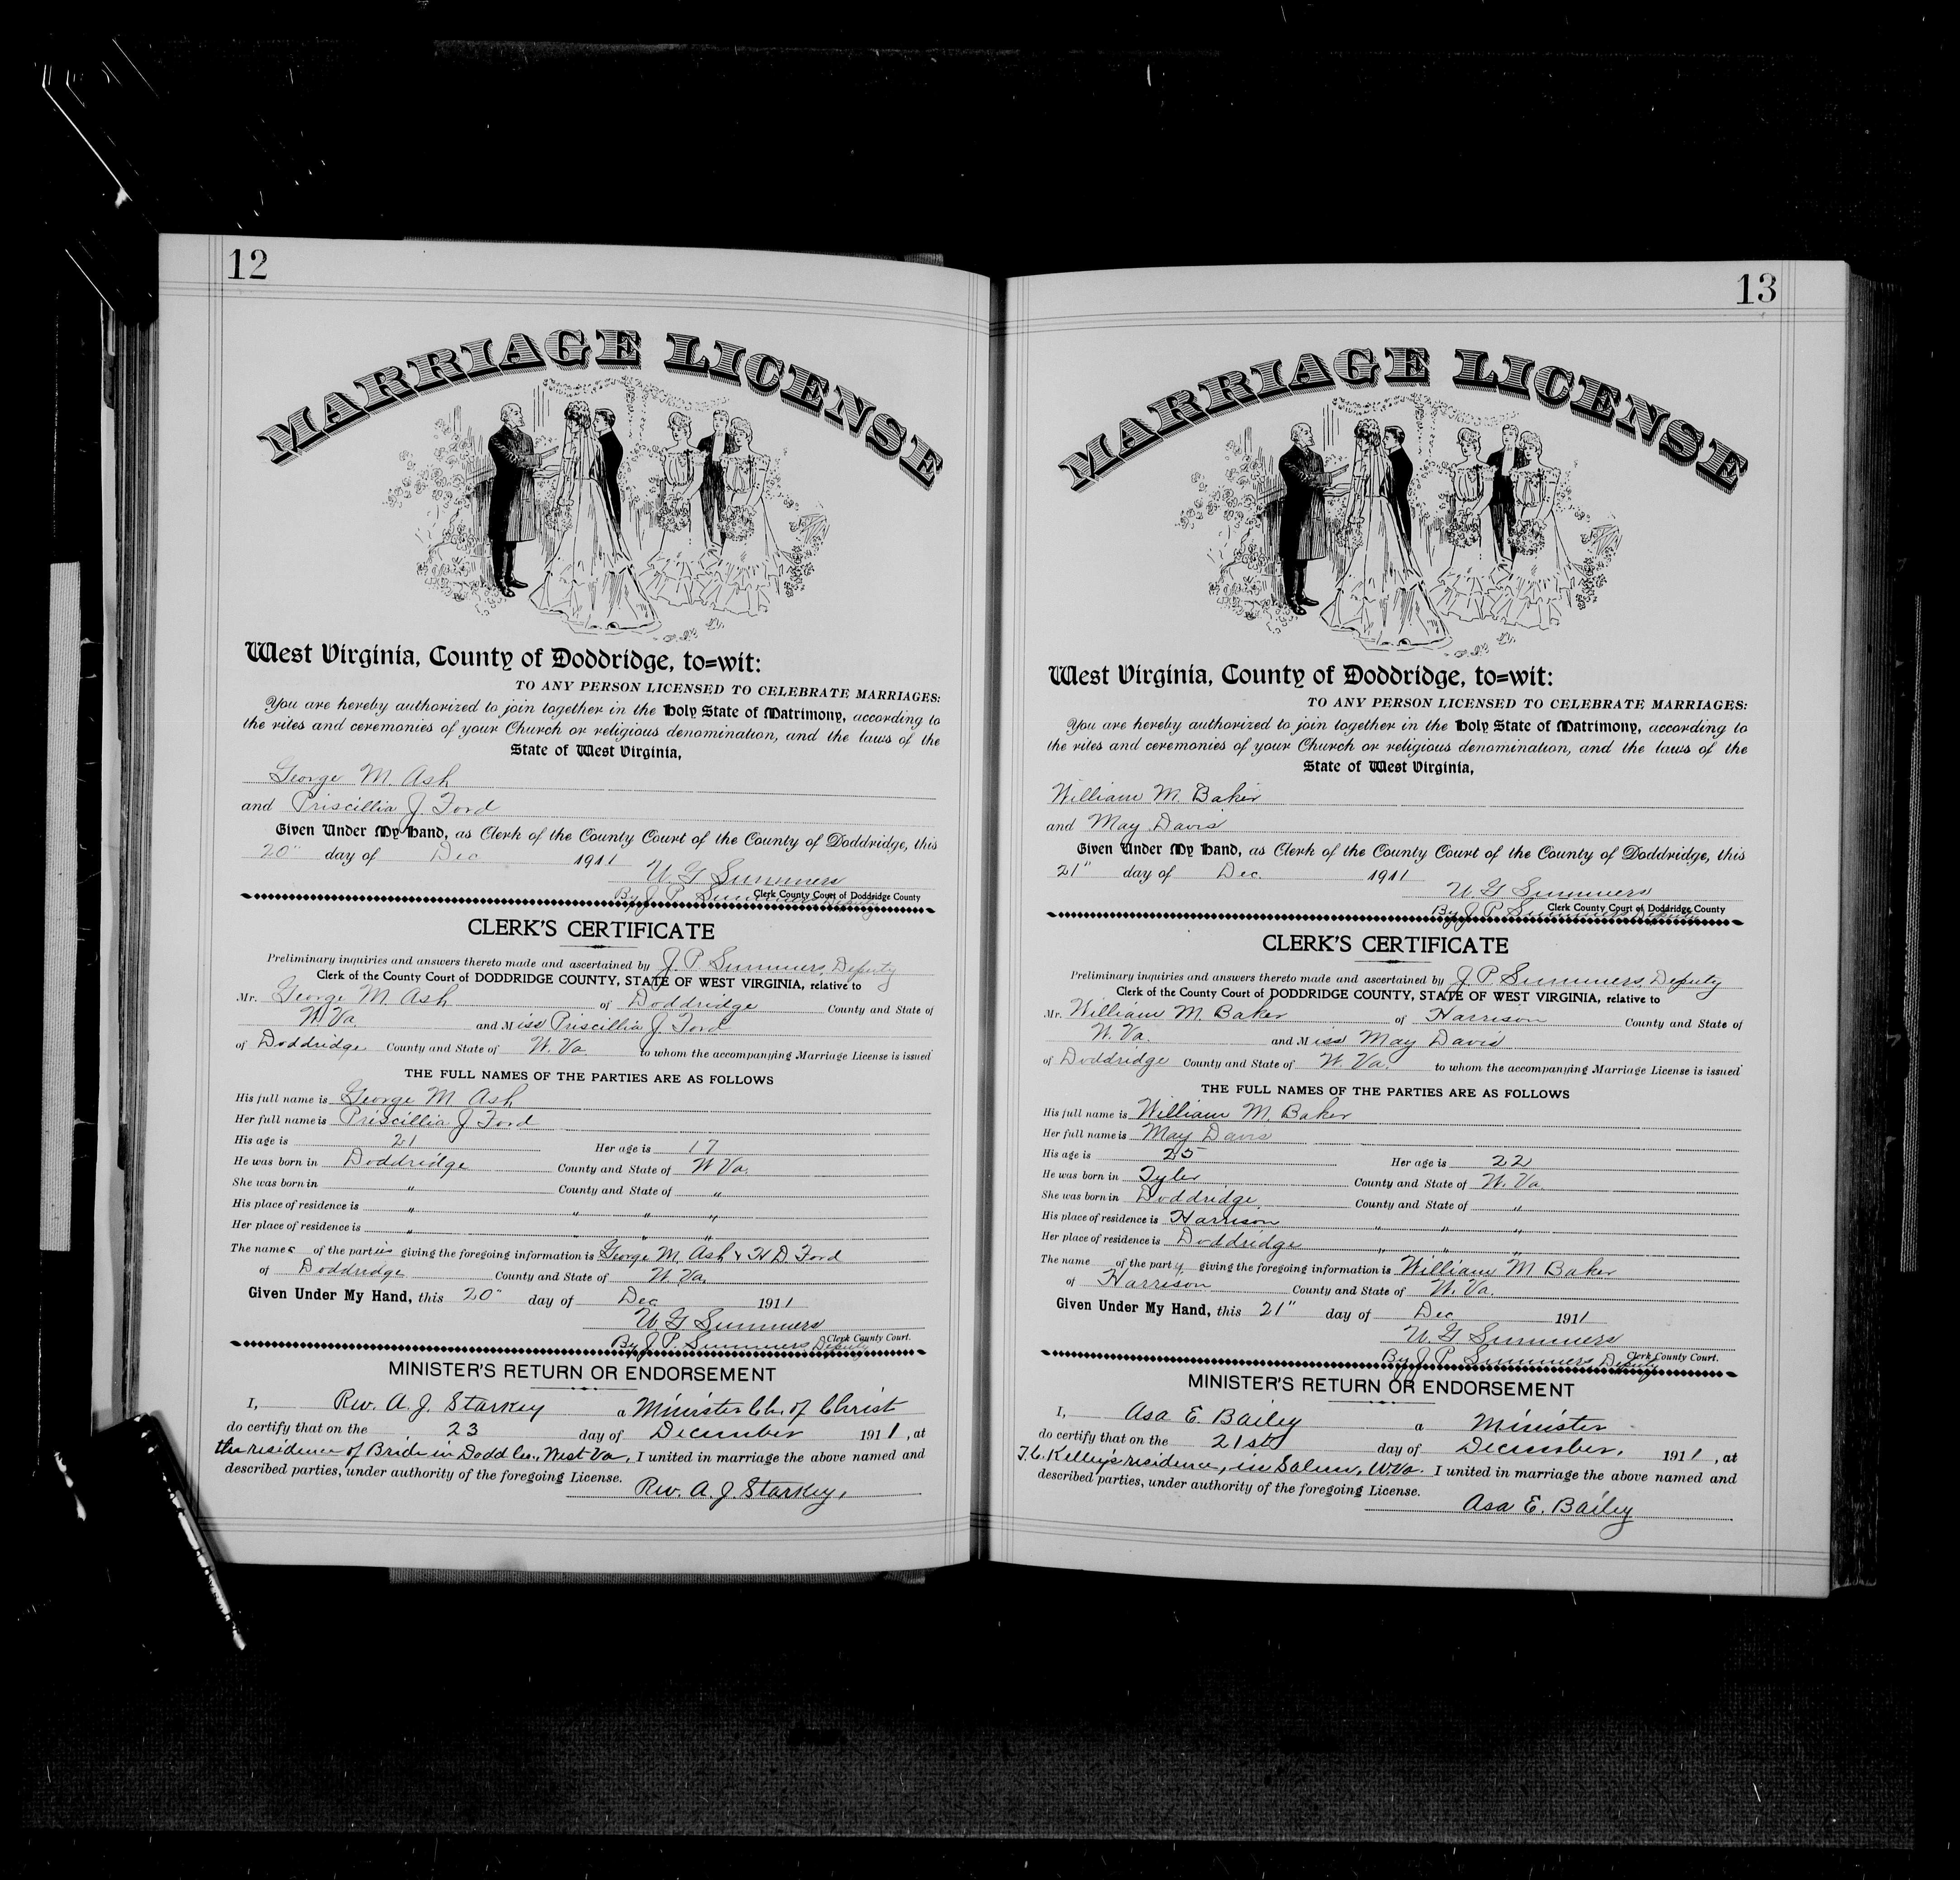 12
MARRIAGE LICENSE
West Virginia, County of Doddridge, to=wit:
TO ANY PERSON LICENSED TO CELEBRATE MARRIAGES:
You are hereby authorized to join together in the Holy State of Matrimony, according to
the rites and ceremonies of your Church or religious denomination, and the laws of the
State of West Virginia,
George M. Ash
and Priscillia J. Ford
Given Under My Hand, as Clerk of the County Court of the County of Doddridge, this
20" day of Dec 1911
U. G Summers
Clerk County Court of Doddridge County
By J. P. Summers, Deputy
CLERK'S CERTIFICATE
Preliminary inquiries and answers thereto made and ascertained by J. P. Summers, Deputy
Clerk of the County Court of DODDRIDGE COUNTY, STATE OF WEST VIRGINIA, relative to
Mr. George M. Ash of Doddridge County and State of
W. Va. and Miss Priscillia J. Ford
of Doddridge County and State of W. Va to whom the accompanying Marriage License is issued
THE FULL NAMES OF THE PARTIES ARE AS FOLLOWS
His full name is George M. Ash
Her full name is Priscillia J Ford
His age is 21 Her age is 17
He was born in Doddridge County and State of W Va.
She was born in " County and State of "
His place of residence is " " " "
Her place of residence is " " " "
The names of the parties giving the foregoing information is George M. Ash & H. D. Ford
of Doddridge County and State of W. Va,
Given Under My Hand, this 20" day of Dec 1911
U. G Summers
Clerk County Court.
By J. P. Summers, Deputy
MINISTER'S RETURN OR ENDORSEMENT
I, Rev. A. J. Starkey a Minister Ch. of Christ
do certify that on the 23 day of December 1911, at
the residence of Bride in Dodd Co., West Va, I united in marriage the above named and
described parties, under authority of the foregoing License.
Rev. A. J. Starkey,
13
MARRIAGE LICENSE
West Virginia, County of Doddridge, to=wit:
TO ANY PERSON LICENSED TO CELEBRATE MARRIAGES:
You are hereby authorized to join together in the Holy State of Matrimony, according to
the rites and ceremonies of your Church or religious denomination, and the laws of the
State of West Virginia,
William M. Baker
and May Davis
Given Under My Hand, as Clerk of the County Court of the County of Doddridge, this
21" day of Dec. 1911
U. G Summers
Clerk County Court of Doddridge County
By J P Summers Deputy
CLERK'S CERTIFICATE
Preliminary inquiries and answers thereto made and ascertained by J. P. Summers, Deputy
Clerk of the County Court of DODDRIDGE COUNTY, STATE OF WEST VIRGINIA, relative to
Mr. William M. Baker of Harrison County and State of
W. Va. and Miss May Davis
of Doddridge County and State of W. Va. to whom the accompanying Marriage License is issued
THE FULL NAMES OF THE PARTIES ARE AS FOLLOWS
His full name is William M. Baker
Her full name is May Davis
His age is 25 Her age is 22
He was born in Tyler County and State of W. Va
She was born in Doddridge County and State of "
His place of residence is Harrison " " "
Her place of residence is Doddridge " " "
The name of the party giving the foregoing information is William M Baker
of Harrison County and State of W. Va.
Given Under My Hand, this 21" day of Dec 1911
U. G Summers
Clerk County Court.
By J P Summers Deputy
MINISTER'S RETURN OR ENDORSEMENT
I, Asa E. Bailey a Minister
do certify that on the 21st day of December, 1911, at
Kelley's residence, in Salem, W.Va. I united in marriage the above named and
described parties, under authority of the foregoing License.
Asa E. Bailey